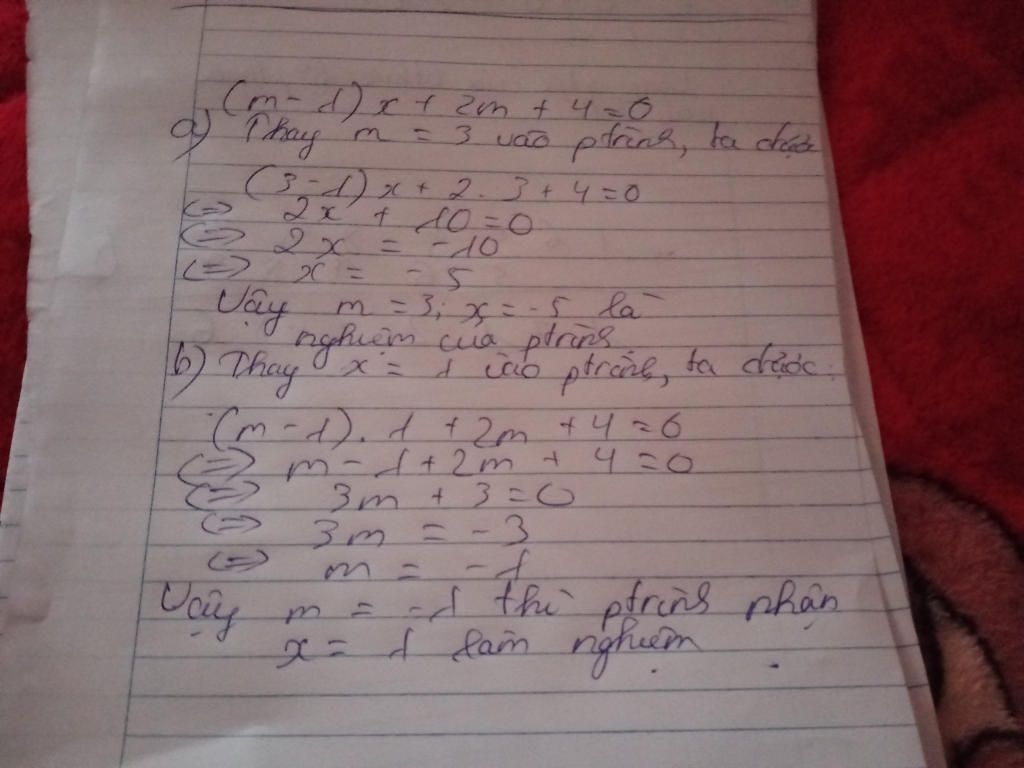 (m - 1) x + 2m + 4 = 0
a) Thay m = 3 vào ptrình, ta được
(3 - 1) x + 2 . 3 + 4 = 0
<=> 2x + 10 = 0
<=> 2x = -10
<=> x = -5
Vậy m = 3; x = -5 là
nghiệm của ptrình
b) Thay x = 1 vào ptrình, ta được:
(m - 1) . 1 + 2m + 4 = 0
<=> m - 1 + 2m + 4 = 0
<=> 3m + 3 = 0
<=> 3m = -3
<=> m = -1
Vậy m = -1 thì ptrình nhận
x = 1 làm nghiệm.